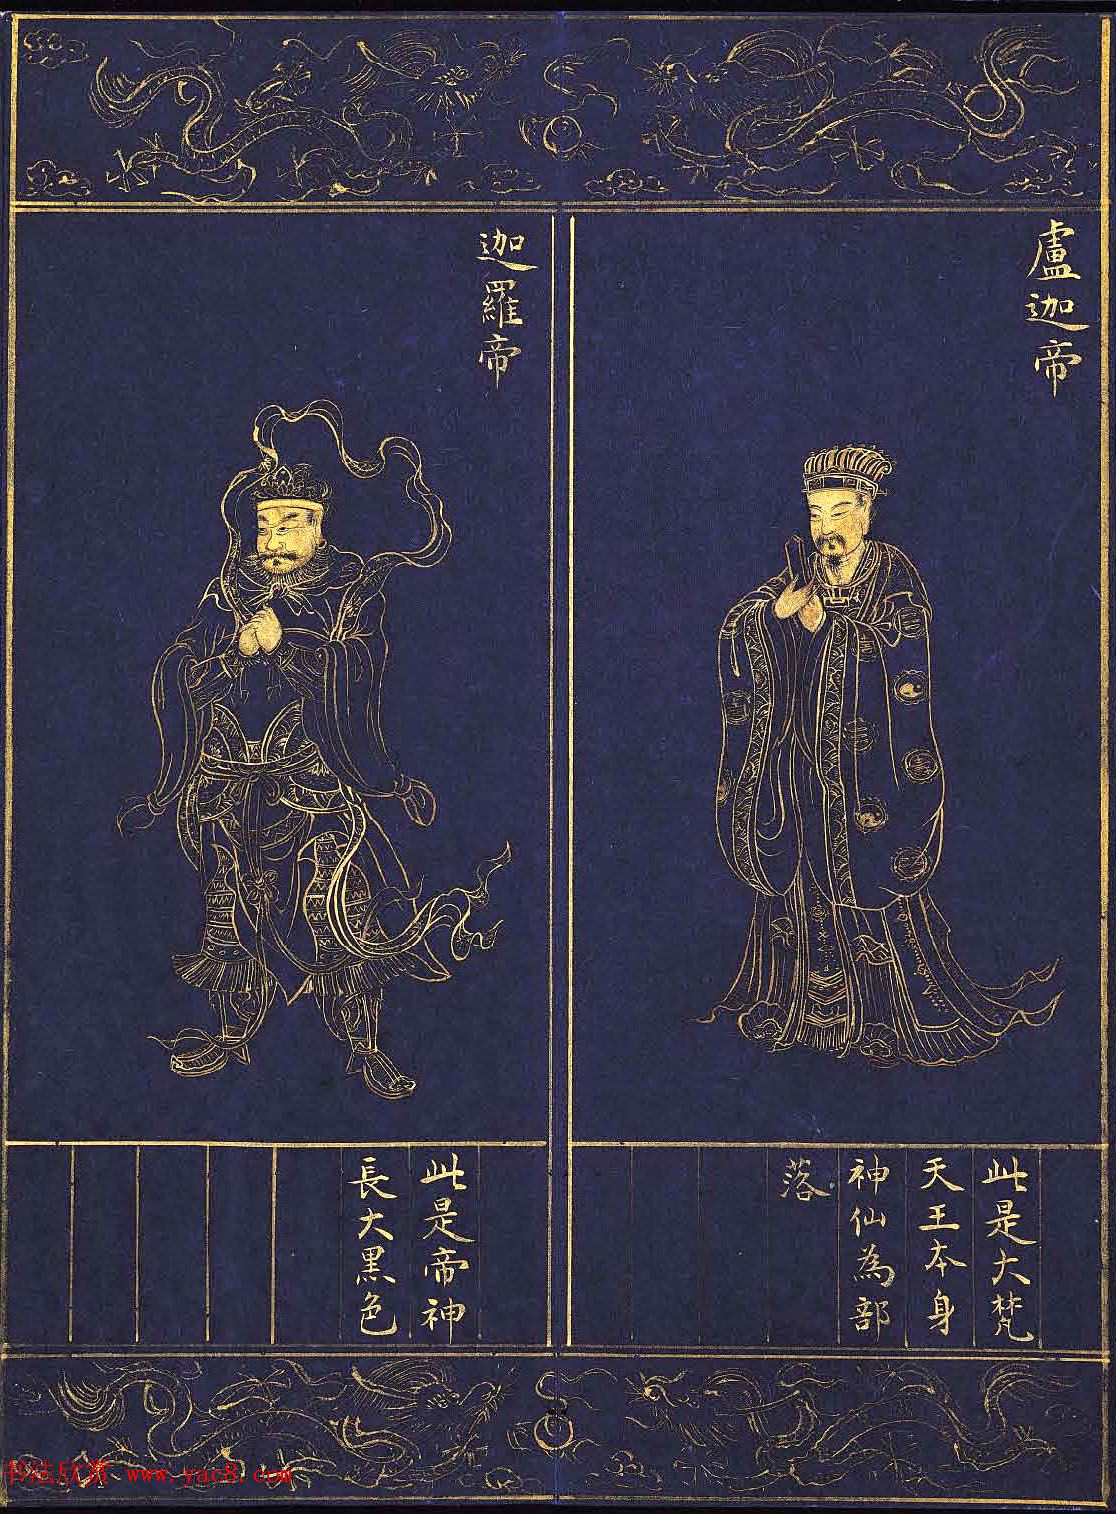 盧迦帝
此是大梵
天王本身
神仙為部
落
迦羅帝
此是帝神
長大黑色
书法欣赏 www.yac8.com